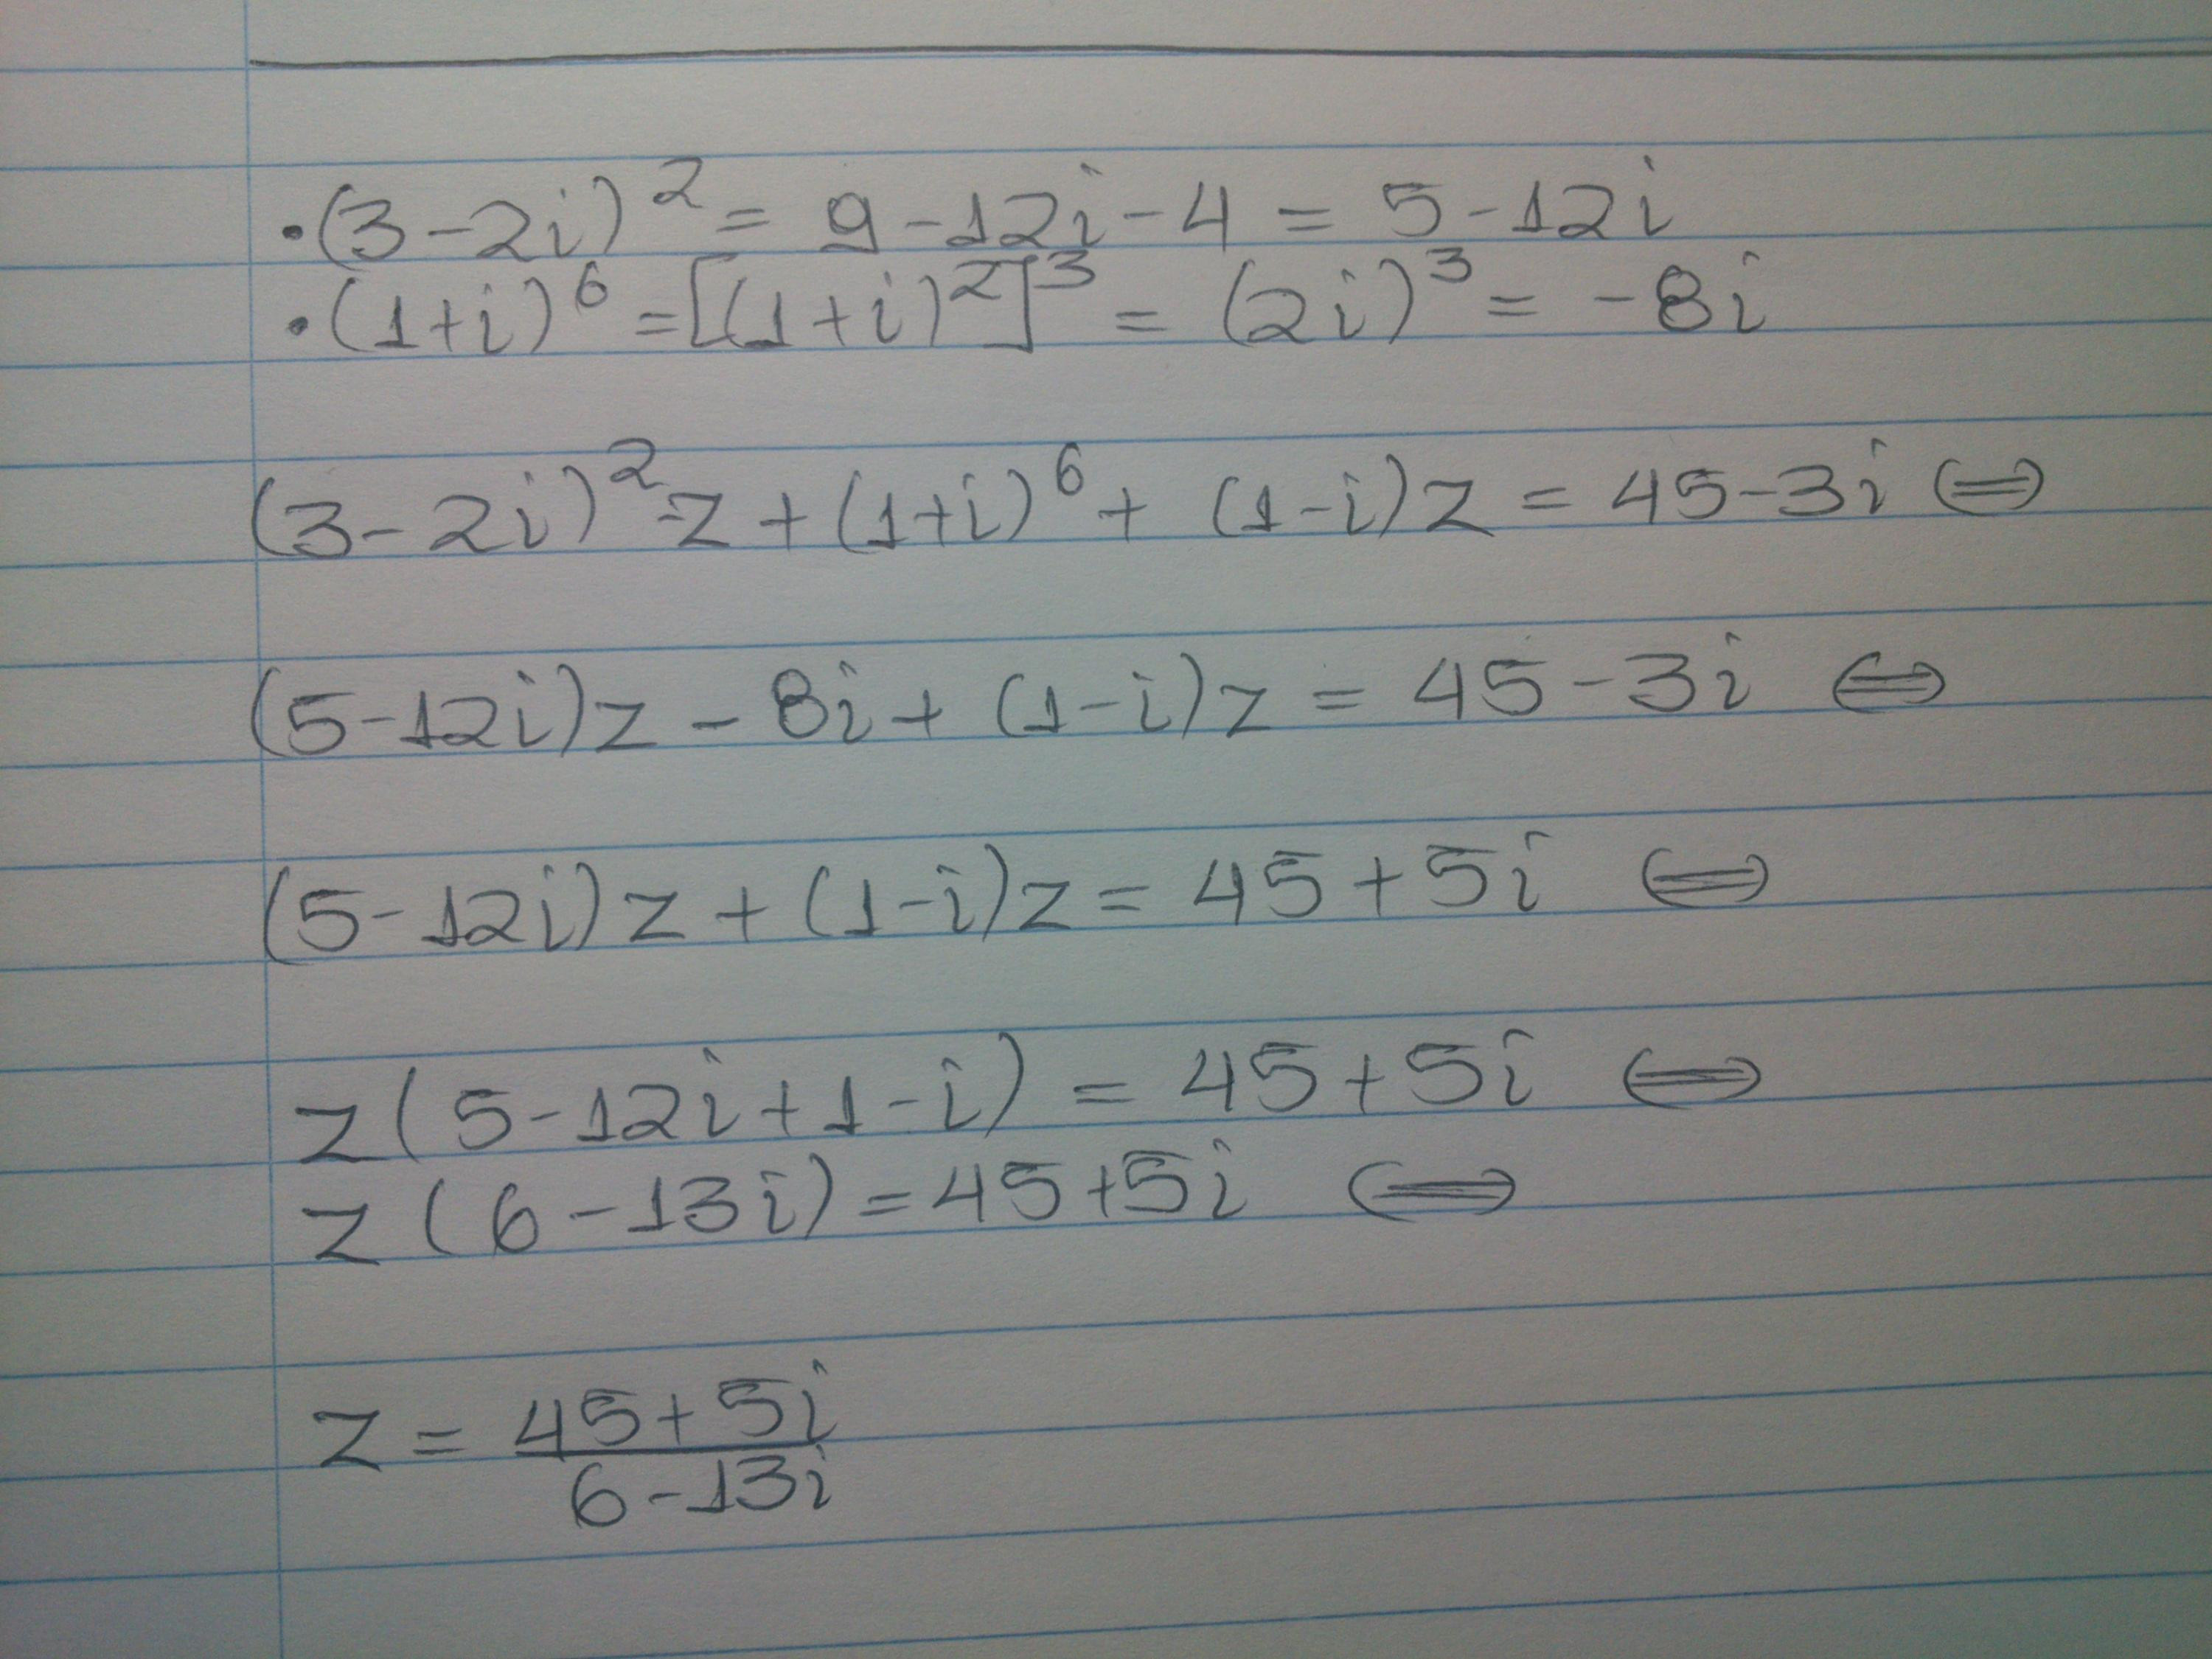 • (3-2i)² = 9-12i-4 = 5-12i
• (1+i)⁶ = [(1+i)²]³ = (2i)³ = -8i
(3-2i)²·z + (1+i)⁶ + (1-i)z = 45-3i ⇔
(5-12i)z - 8i + (1-i)z = 45-3i ⇔
(5-12i)z + (1-i)z = 45+5i ⇔
z(5-12i+1-i) = 45+5i ⇔
z(6-13i) = 45+5i ⇔
z = 45+5i
6-13i